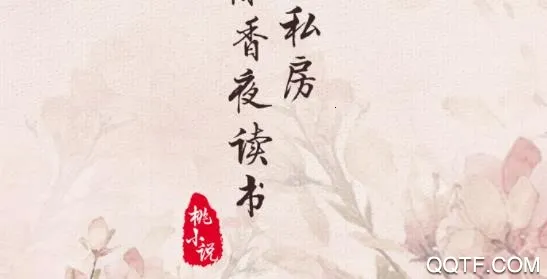 私房
香夜读书
桃小说
QQTF.COM